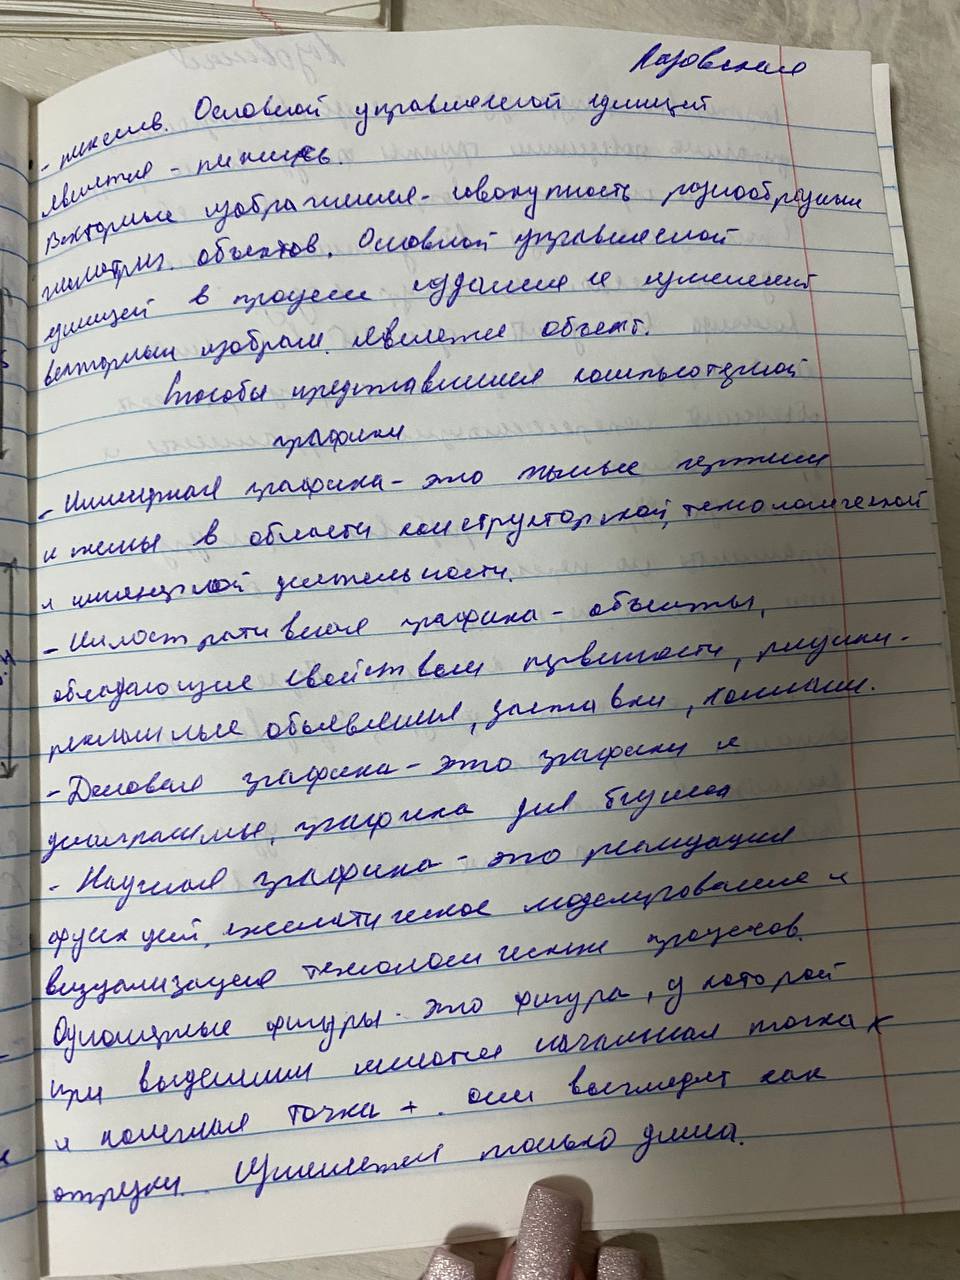 Лазовская
- пикселев. Основной управляемой единицей
является - пиксель
Векторные изображения - совокупность разнообразных
геометрич. объектов. Основной управляемой
единицей в процессе создания и изменений
векторных изображ. является объект.
Способы представления компьютерной
графики
- Инженерная графика - это чертежи
и схемы в области конструкторской, технологической
и инженерной деятельности.
- Иллюстративная графика - объекты,
обладающие свойством первичности, рисунки -
рекламные объявления, заставки,
- Деловая графика - это графики и
диаграммы, графика для бизнеса
- Научная графика - это реализация
функций, математическое моделирование и
визуализация технологических процессов.
Одномерные фигуры - это фигура, у которой
при выделении имеются начальная точка х
и конечная точка +. они выглядят как
отрезки. Изменяется только длина.